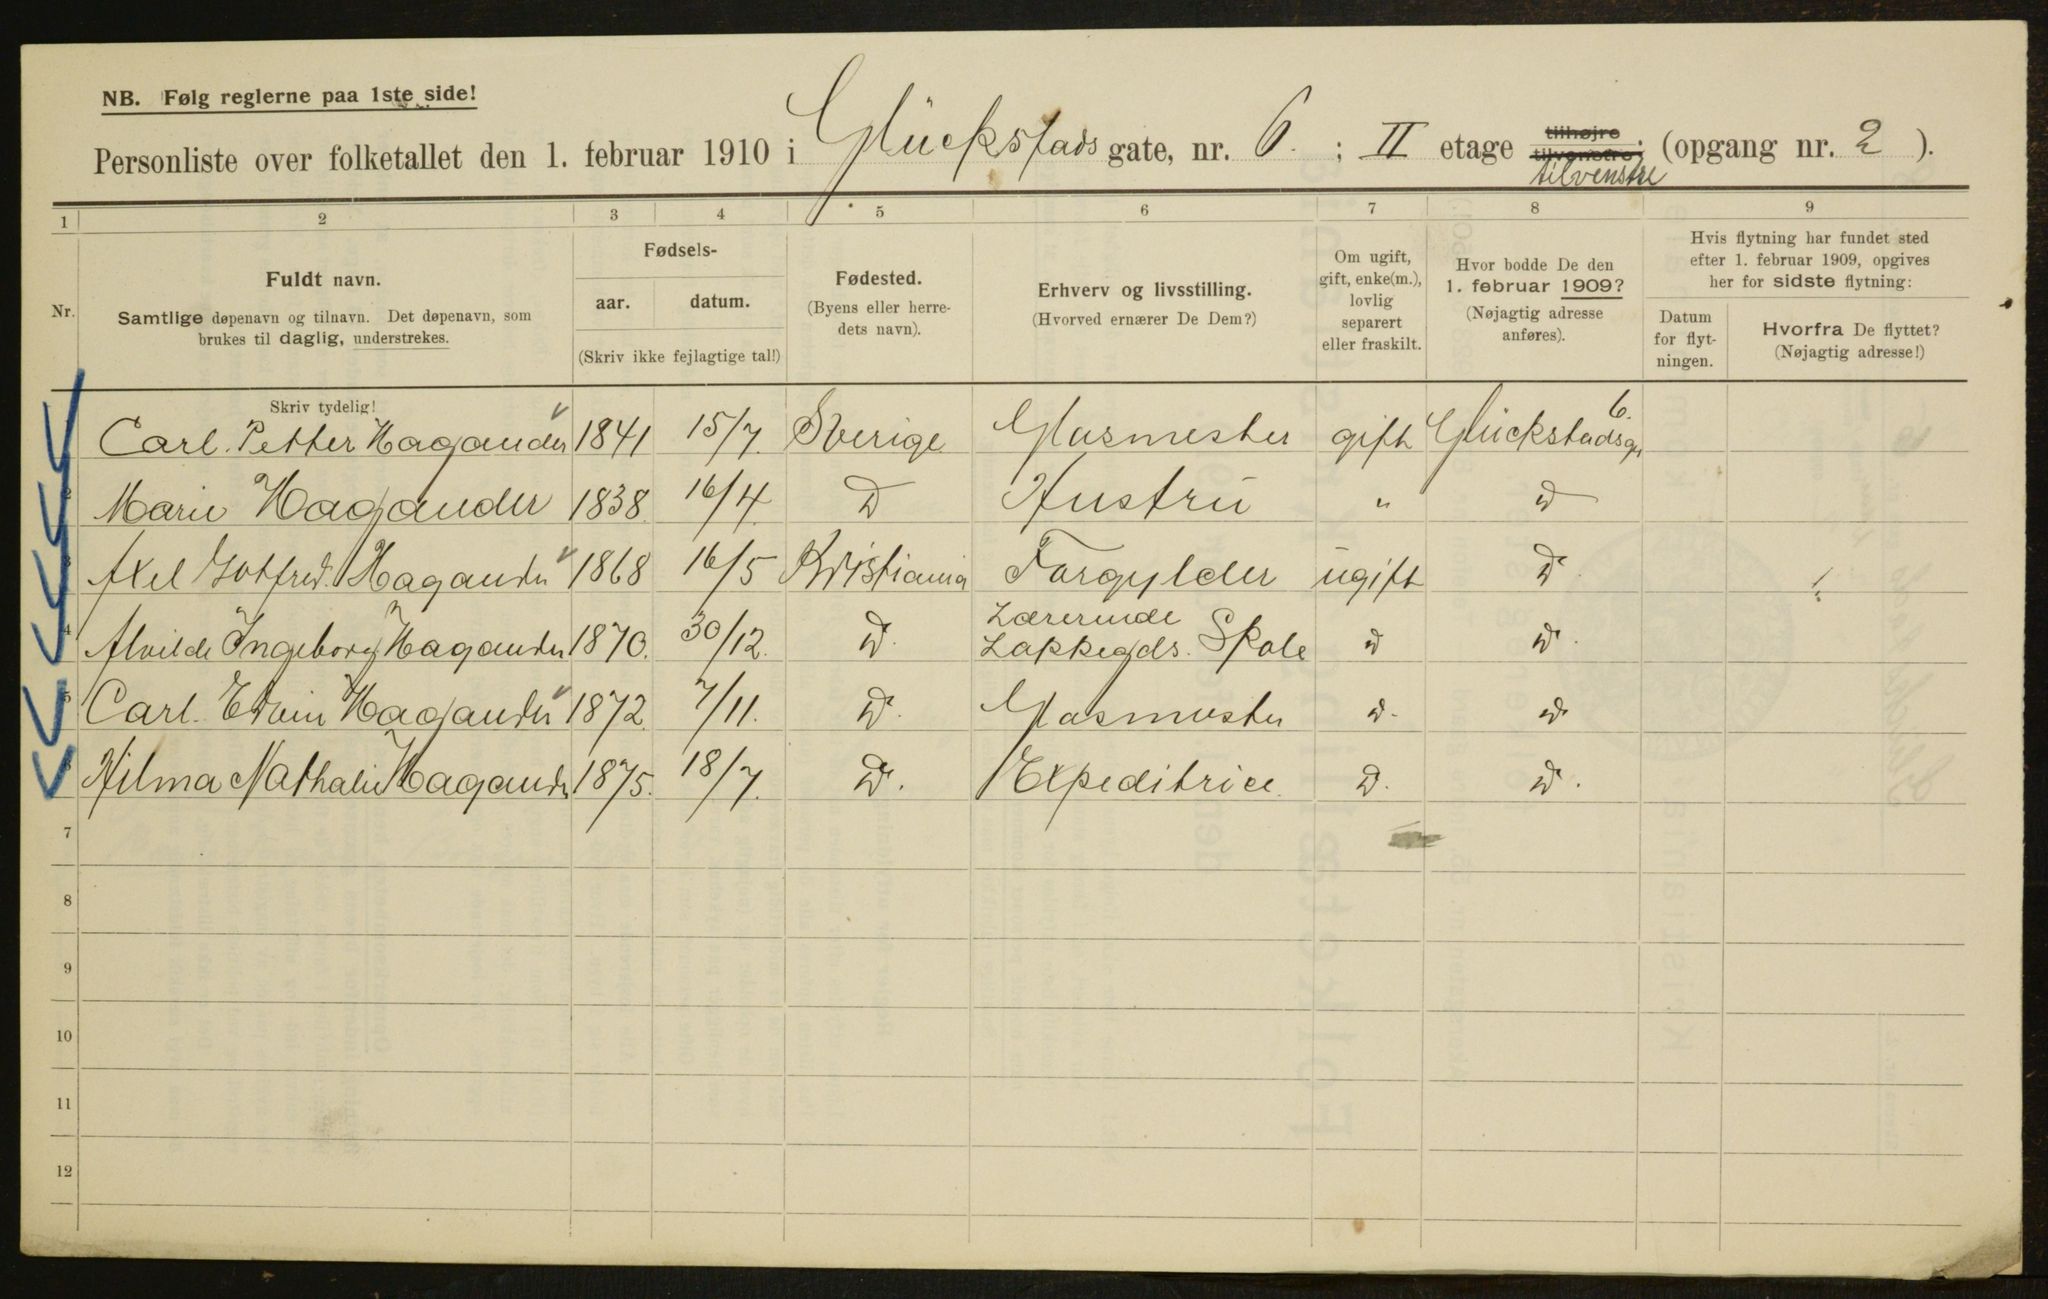 NB. Følg reglerne paa 1ste side!
Personliste over folketallet den 1. februar 1910 i Glückstads gate, nr. 6. ; II etage tilhøjre tilvenstre; (opgang nr. 2 ).
tilvenstre
1 2 3 4 5 6 7 8 9
Nr.
Fuldt navn.
Samtlige døpenavn og tilnavn. Det døpenavn, som
brukes til daglig, understrekes.
Fødsels-
aar. datum.
(Skriv ikke fejlagtige tal!)
Fødested.
(Byens eller herre-
dets navn).
Erhverv og livsstilling.
(Hvorved ernærer De Dem?)
Om ugift,
gift, enke(m.),
lovlig
separert
eller fraskilt.
Hvor bodde De den
1. februar 1909?
(Nøjagtig adresse
anføres).
Hvis flytning har fundet sted
efter 1. februar 1909, opgives
her for sidste flytning:
Datum
for flyt-
ningen.
Hvorfra De flyttet?
(Nøjagtig adresse!)
Skriv tydelig!
Carl. Petter Hagander 1841 15/7. Sverige Glasmester gift Glückstadsg. 6.
2 Marie Hagander 1838. 16/4. D Hustru " D
3 Axel Gotfred. Hagander 1868 16/5 Kristiania Forgylder ugift D
4 Alvilde Ingeborg Hagander 1870. 30/12. D. Lærerinde Lakkegds. Skole D D.
5 Carl. Edvin Hagander 1872. 7/11. D. Glasmester D. D
6 Hilma Nathalie Hagander 1875. 18/7. D. Expeditrice. D. D.
7
8
9
10
11
12